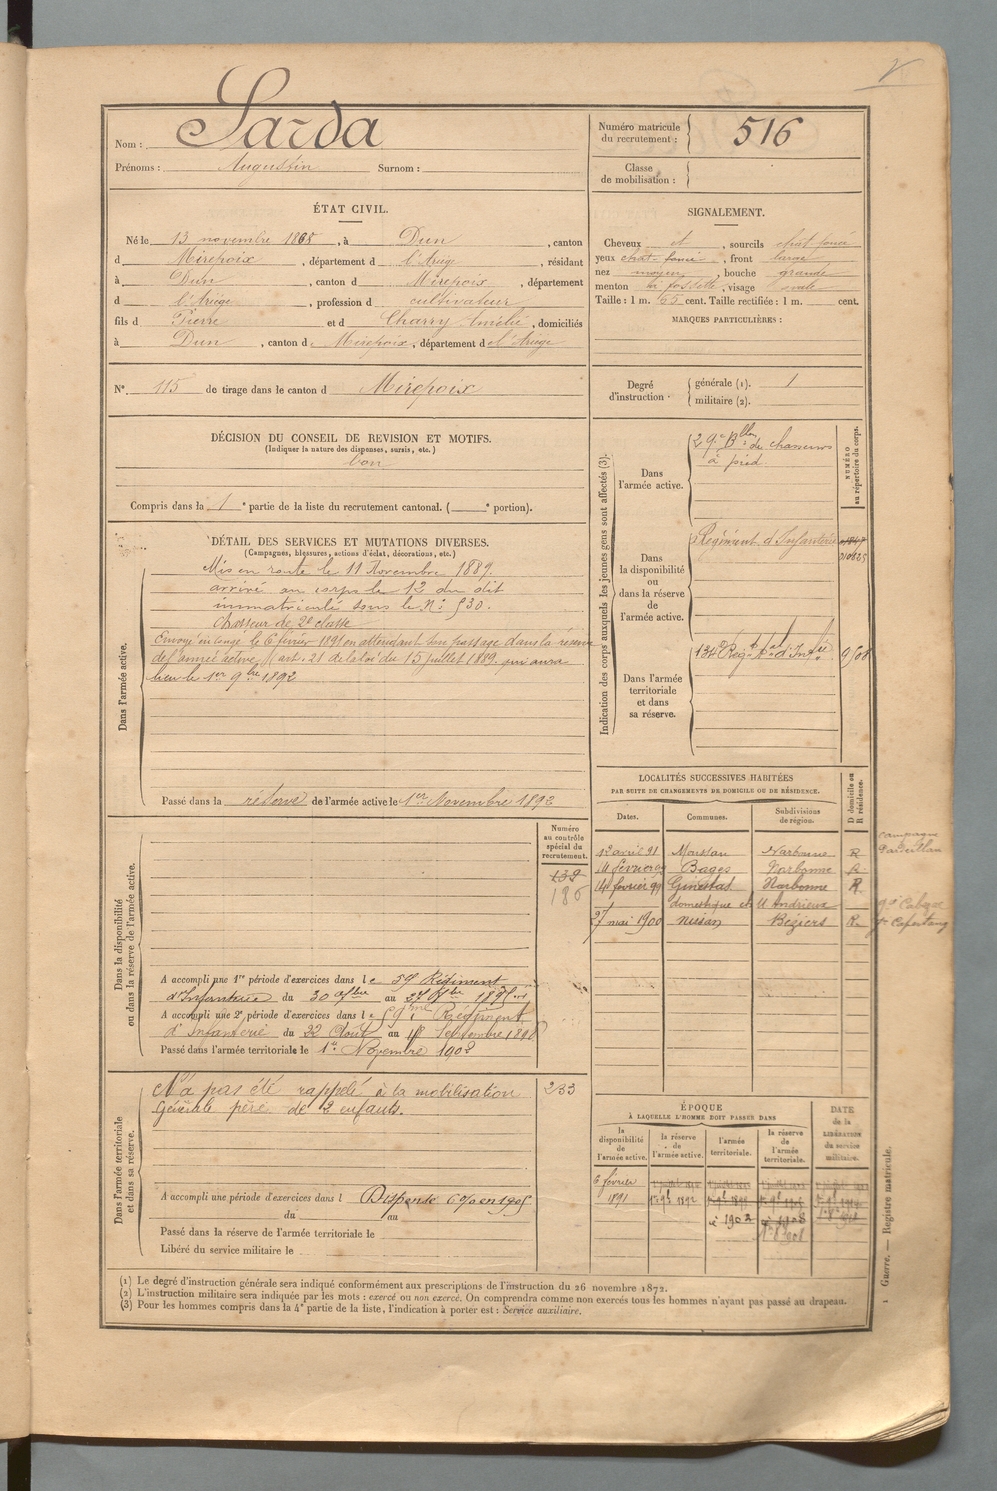 Nom : Sarda
Prénoms : Augustin Surnom :
Numéro matricule du recrutement : 516
Classe de mobilisation :
ÉTAT CIVIL.
Né le 13 novembre 1868, à Dun, canton
d Mirepoix, département d l'Ariège, résidant
à Dun, canton d Mirepoix, département
d l'Ariège, profession d cultivateur
fils d Pierre et d Charry Amélie, domiciliés
à Dun, canton d Mirepoix, département d l'Ariège
N° 115 de tirage dans le canton d Mirepoix
SIGNALEMENT.
Cheveux et, sourcils chat foncé
yeux chat foncé, front large
nez moyen, bouche grande
menton à fossette, visage ovale
Taille : 1 m. 65 cent. Taille rectifiée : 1 m. cent.
MARQUES PARTICULIÈRES :
Degré d'instruction. générale (1). 1
militaire (2).
DÉCISION DU CONSEIL DE REVISION ET MOTIFS.
(Indiquer la nature des dispenses, sursis, etc.)
bon
Compris dans la 1e partie de la liste du recrutement cantonal. ( e portion).
DÉTAIL DES SERVICES ET MUTATIONS DIVERSES.
(Campagnes, blessures, actions d'éclat, décorations, etc.)
Dans l'armée active.
Mis en route le 11 Novembre 1889.
arrivé au corps le 12 du dit
immatriculé sous le N° 530.
Chasseur de 2e classe
Envoyé en congé le 6 février 1891 en attendant son passage dans la réserve
de l'armée active (art. 21 de la loi du 15 juillet 1889. qui aura
lieu le 1er 9bre 1892
Passé dans la réserve de l'armée active le 1er Novembre 1892
Indication des corps auxquels les jeunes gens sont affectés (3).
NUMÉRO au répertoire du corps.
Dans l'armée active.
29e Bllon de chasseurs
à pied
Dans la disponibilité ou dans la réserve de l'armée active.
Régiment d'Infanterie
Dans l'armée territoriale et dans sa réserve.
134e Régt tal d'Infie 9508
LOCALITÉS SUCCESSIVES HABITÉES
PAR SUITE DE CHANGEMENTS DE DOMICILE OU DE RÉSIDENCE.
Dates. Communes. Subdivisions de région. D domicile ou R résidence.
12 avril 91 Moussan Narbonne R campagne
14 février Bages Narbonne R
14 février 99 Ginestas Narbonne R
domestique et Andrieux
27 mai 1900 Nissan Béziers R
Dans la disponibilité ou dans la réserve de l'armée active.
Numéro au contrôle spécial du recrutement.
138
186
A accompli une 1re période d'exercices dans le 59 Régiment
d'Infanterie du 30 au 27 1895
A accompli une 2e période d'exercices dans le 59me Régiment
d'Infanterie du 22 Août au 18 Septembre 1898
Passé dans l'armée territoriale le 1er Novembre 1902
Dans l'armée territoriale et dans sa réserve.
N'a pas été rappelé à la mobilisation 233
Générale père de 2 enfants.
A accompli une période d'exercices dans l Dispensé 6 % en 1905
du au
Passé dans la réserve de l'armée territoriale le
Libéré du service militaire le
ÉPOQUE
À LAQUELLE L'HOMME DOIT PASSER DANS
DATE de la LIBÉRATION du service militaire.
la disponibilité de l'armée active. la réserve de l'armée active. l'armée territoriale. la réserve de l'armée territoriale.
6 février
1891
1892
1902
1908
(1) Le degré d'instruction générale sera indiqué conformément aux prescriptions de l'instruction du 26 novembre 1872.
(2) L'instruction militaire sera indiquée par les mots : exercé ou non exercé. On comprendra comme non exercés tous les hommes n'ayant pas passé au drapeau.
(3) Pour les hommes compris dans la 4e partie de la liste, l'indication à porter est : Service auxiliaire.
1 Guerre. — Registre matricule.